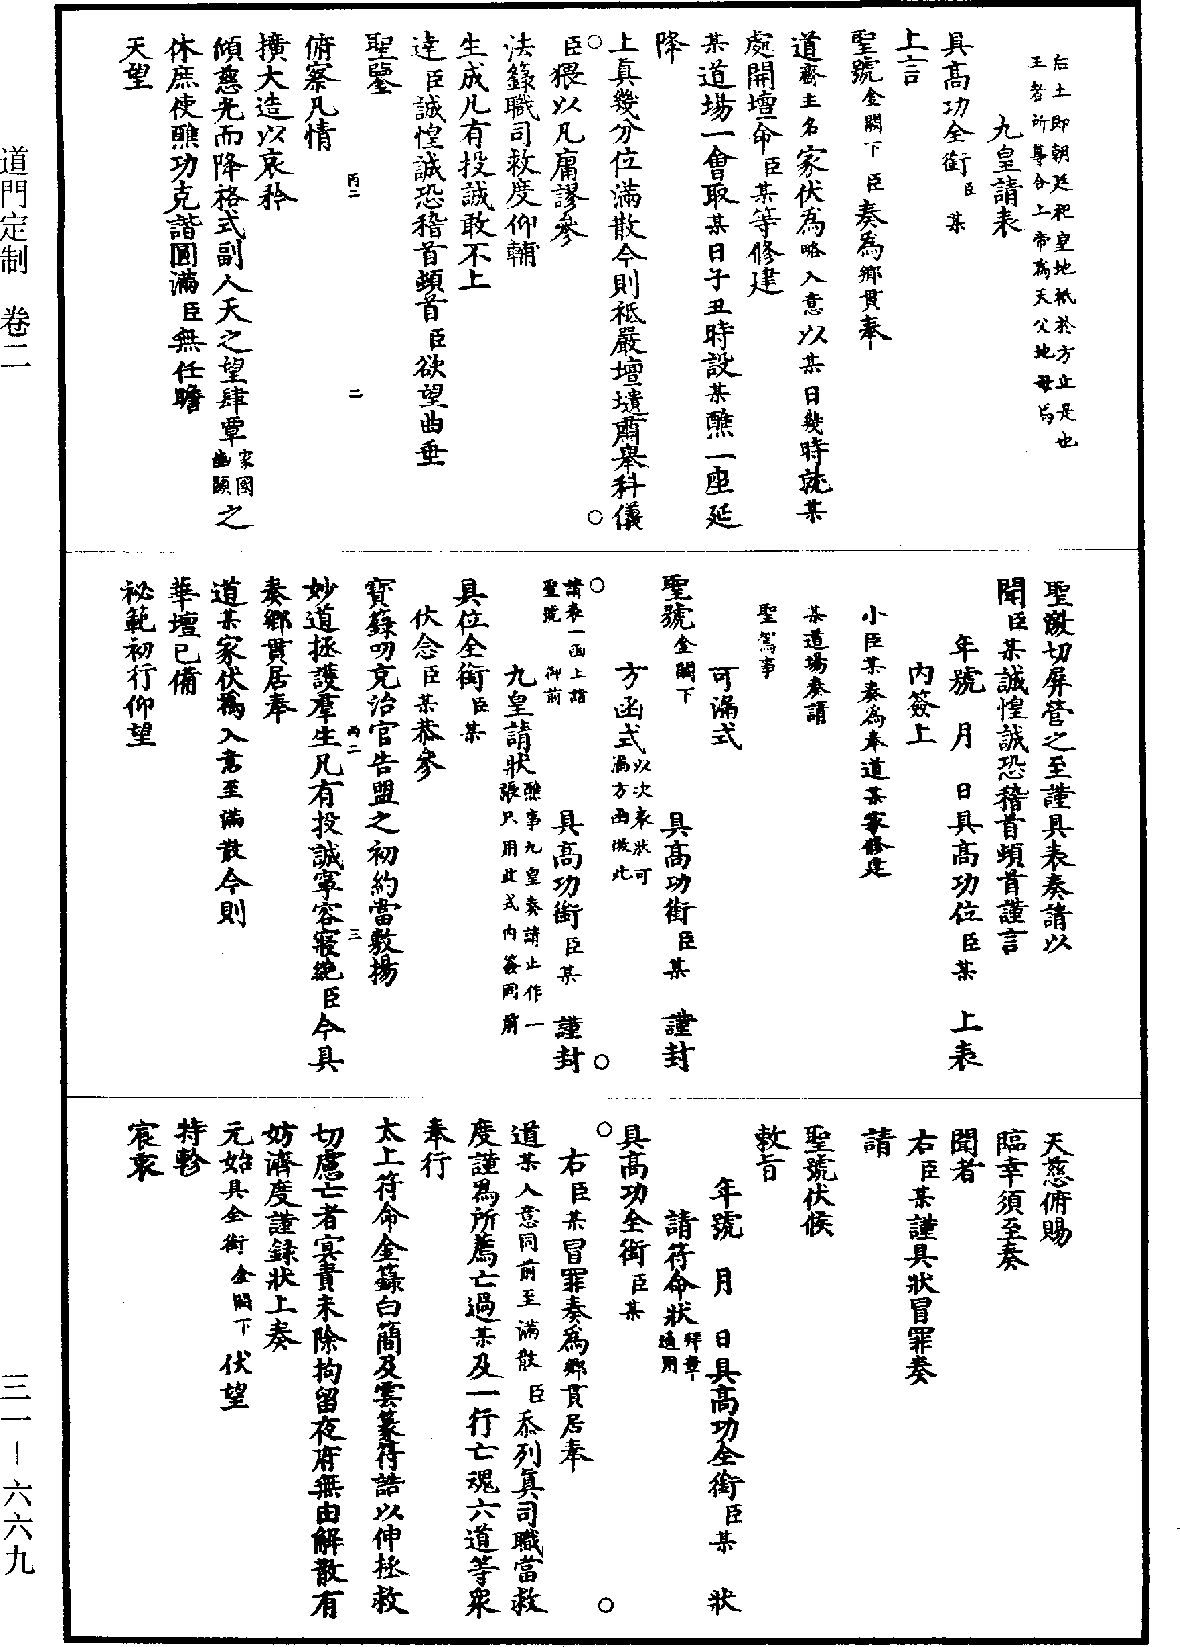 后土即朝廷祀皇地祇於方丘是也
王者所尊合上帝為天父地母焉
九皇請表
具高功全銜臣某
上言
聖號金闕下臣奏為鄉貫奉
道齋主名家伏為略入意以某日幾時就某
處開壇命臣某等修建
某道場一會取某日子丑時設某醮一座延
降
上真幾分位滿散今則祗嚴壇墠肅舉科儀
臣猥以凡庸謬參
法籙職司救度仰輔
生成凡有投誠敢不上
達臣誠惶誠恐稽首頓首臣欲望曲垂
聖鑒
俯察凡情
擴大造以哀矜
傾慈光而降格式副人天之望肆覃家國幽顯之
休庶使醮功克諧圓滿臣無任瞻
天望
丙二
二
聖激切屏營之至謹具表奏請以
聞臣某誠惶誠恐稽首頓首謹言
年號 月 日具高功位臣某 上表
內簽上
小臣某奏為奉道某家修建
某道場奏請
聖駕事
可漏式
聖號金闕下 具高功銜臣某 謹封
方函式以次表狀可漏方函倣此
請表一函上詣
聖號 御前 具高功銜臣某 謹封
九皇請狀醮事九皇奏請止作一張只用此式內簽同前
具位全銜臣某
伏念臣某恭參
寶籙叨克治官告盟之初約當敷揚
妙道拯護羣生凡有投誠寧容寢絶臣今具
奏鄉貫居奉
道某家伏為入意至滿散今則
華壇已備
祕範初行仰望
丙二
三
天慈俯賜
臨幸須至奏
聞者
右臣某謹具狀冒罪奏
請
聖號伏候
敕旨
年號 月 日具高功全銜臣某 狀
請符命狀拜章通用
具高功全銜臣某
右臣某冒罪奏為鄉貫居奉
道某入意同前至滿散臣忝列真司職當救
度謹為所薦亡過某及一行亡魂六道等衆
奉行
太上符命金籙白簡及雲篆符誥以伸拯救
切慮亡者冥責未除拘留夜府無由解散有
妨濟度謹録狀上奏
元始具全銜金闕下伏望
特軫
宸衷
道門定制 卷二
三一－六六九